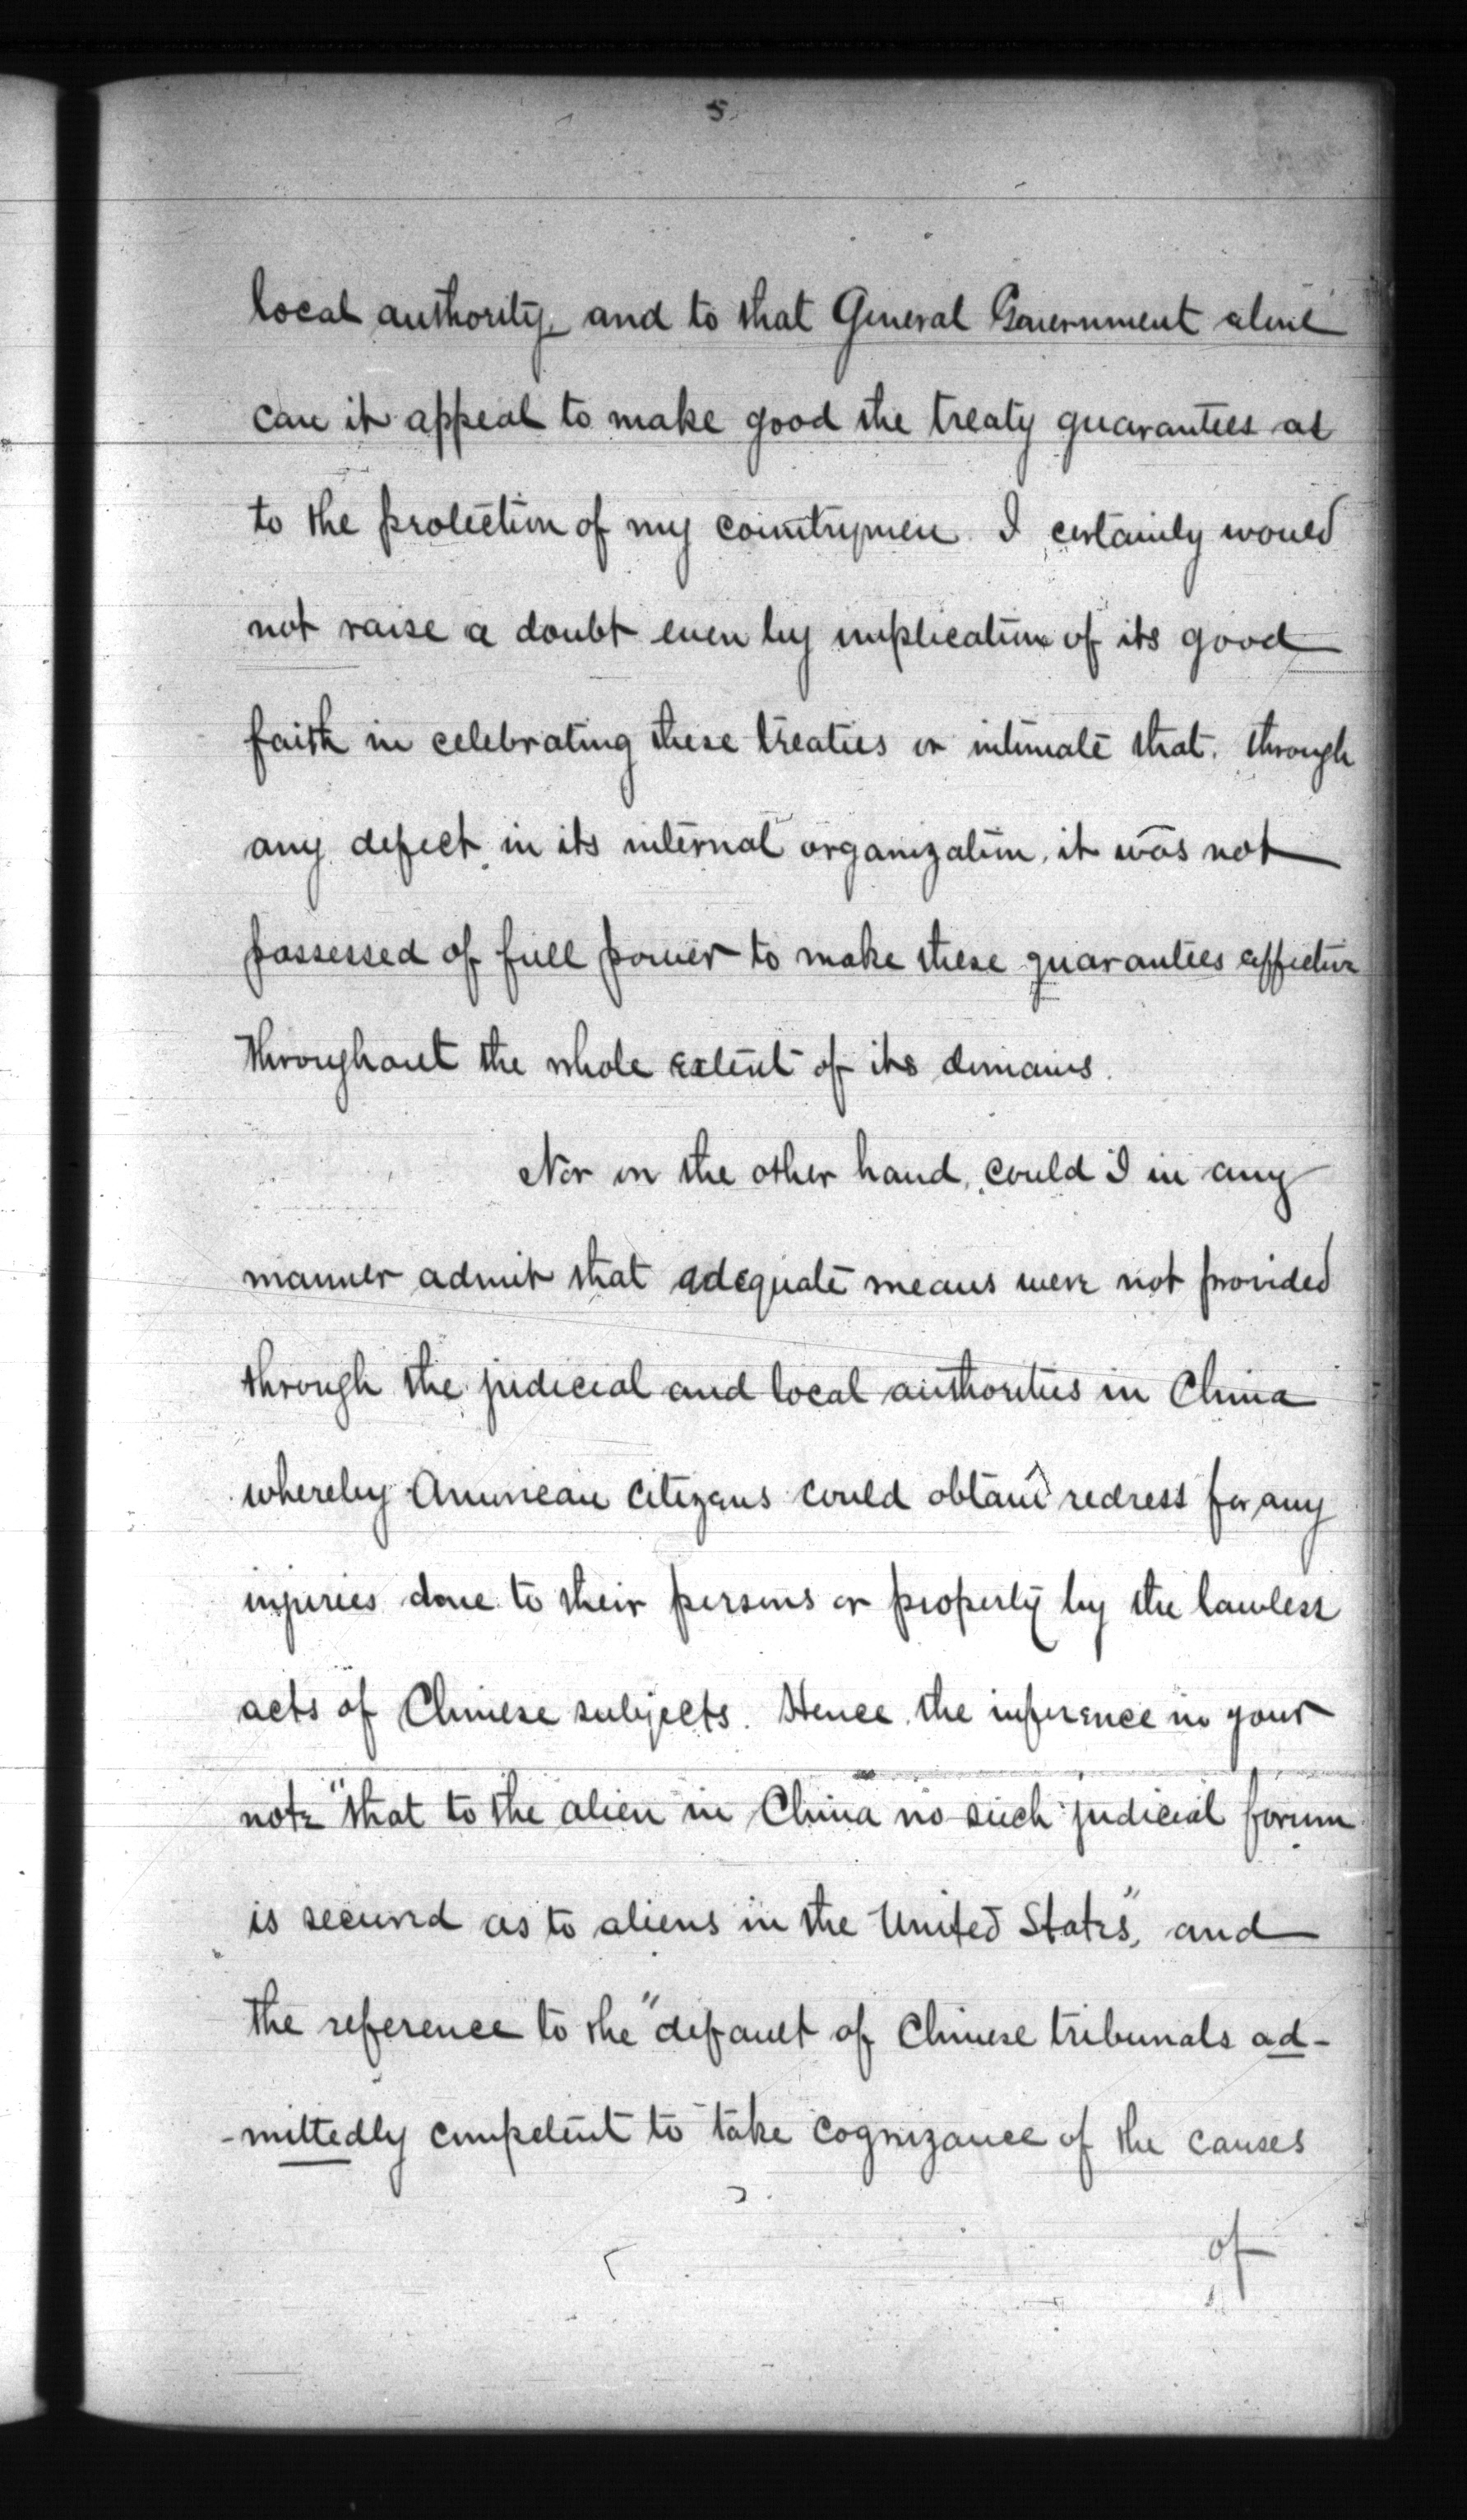 5.
local authority, and to that General Government alone
can it appeal to make good the treaty guarantees as
to the protection of my countrymen. I certainly would
not raise a doubt even by implication of its good
faith in celebrating these treaties or intimate that, through
any defect in its internal organization, it was not
possessed of full power to make these guarantees effective
throughout the whole extent of its domains.
Nor on the other hand, could I in any
manner admit that adequate means were not provided
through the judicial and local authorities in China
whereby American citizens could obtain redress for any
injuries done to their persons or property by the lawless
acts of Chinese subjects. Hence the inference in your
note "that to the alien in China no such judicial forum
is secured as to aliens in the United States", and
the reference to the "default of Chinese tribunals ad-
-mittedly competent to take cognizance of the causes
of